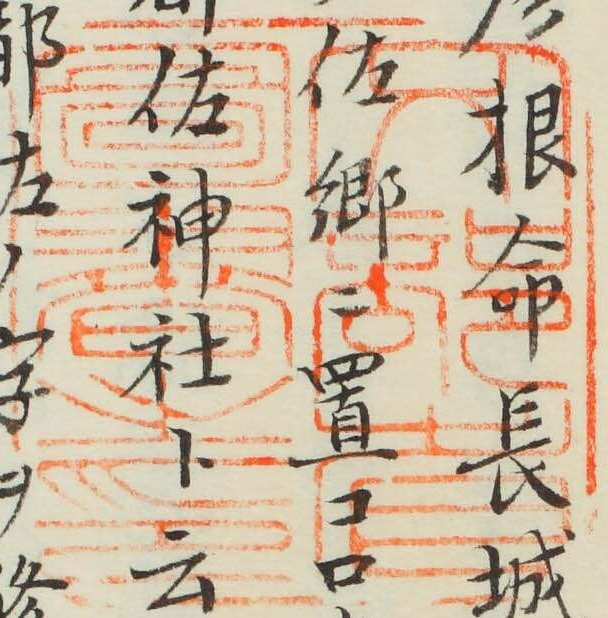 根命長城
佐郷ニ置コロ
佐神社ト云
郡左ノ字ヲ